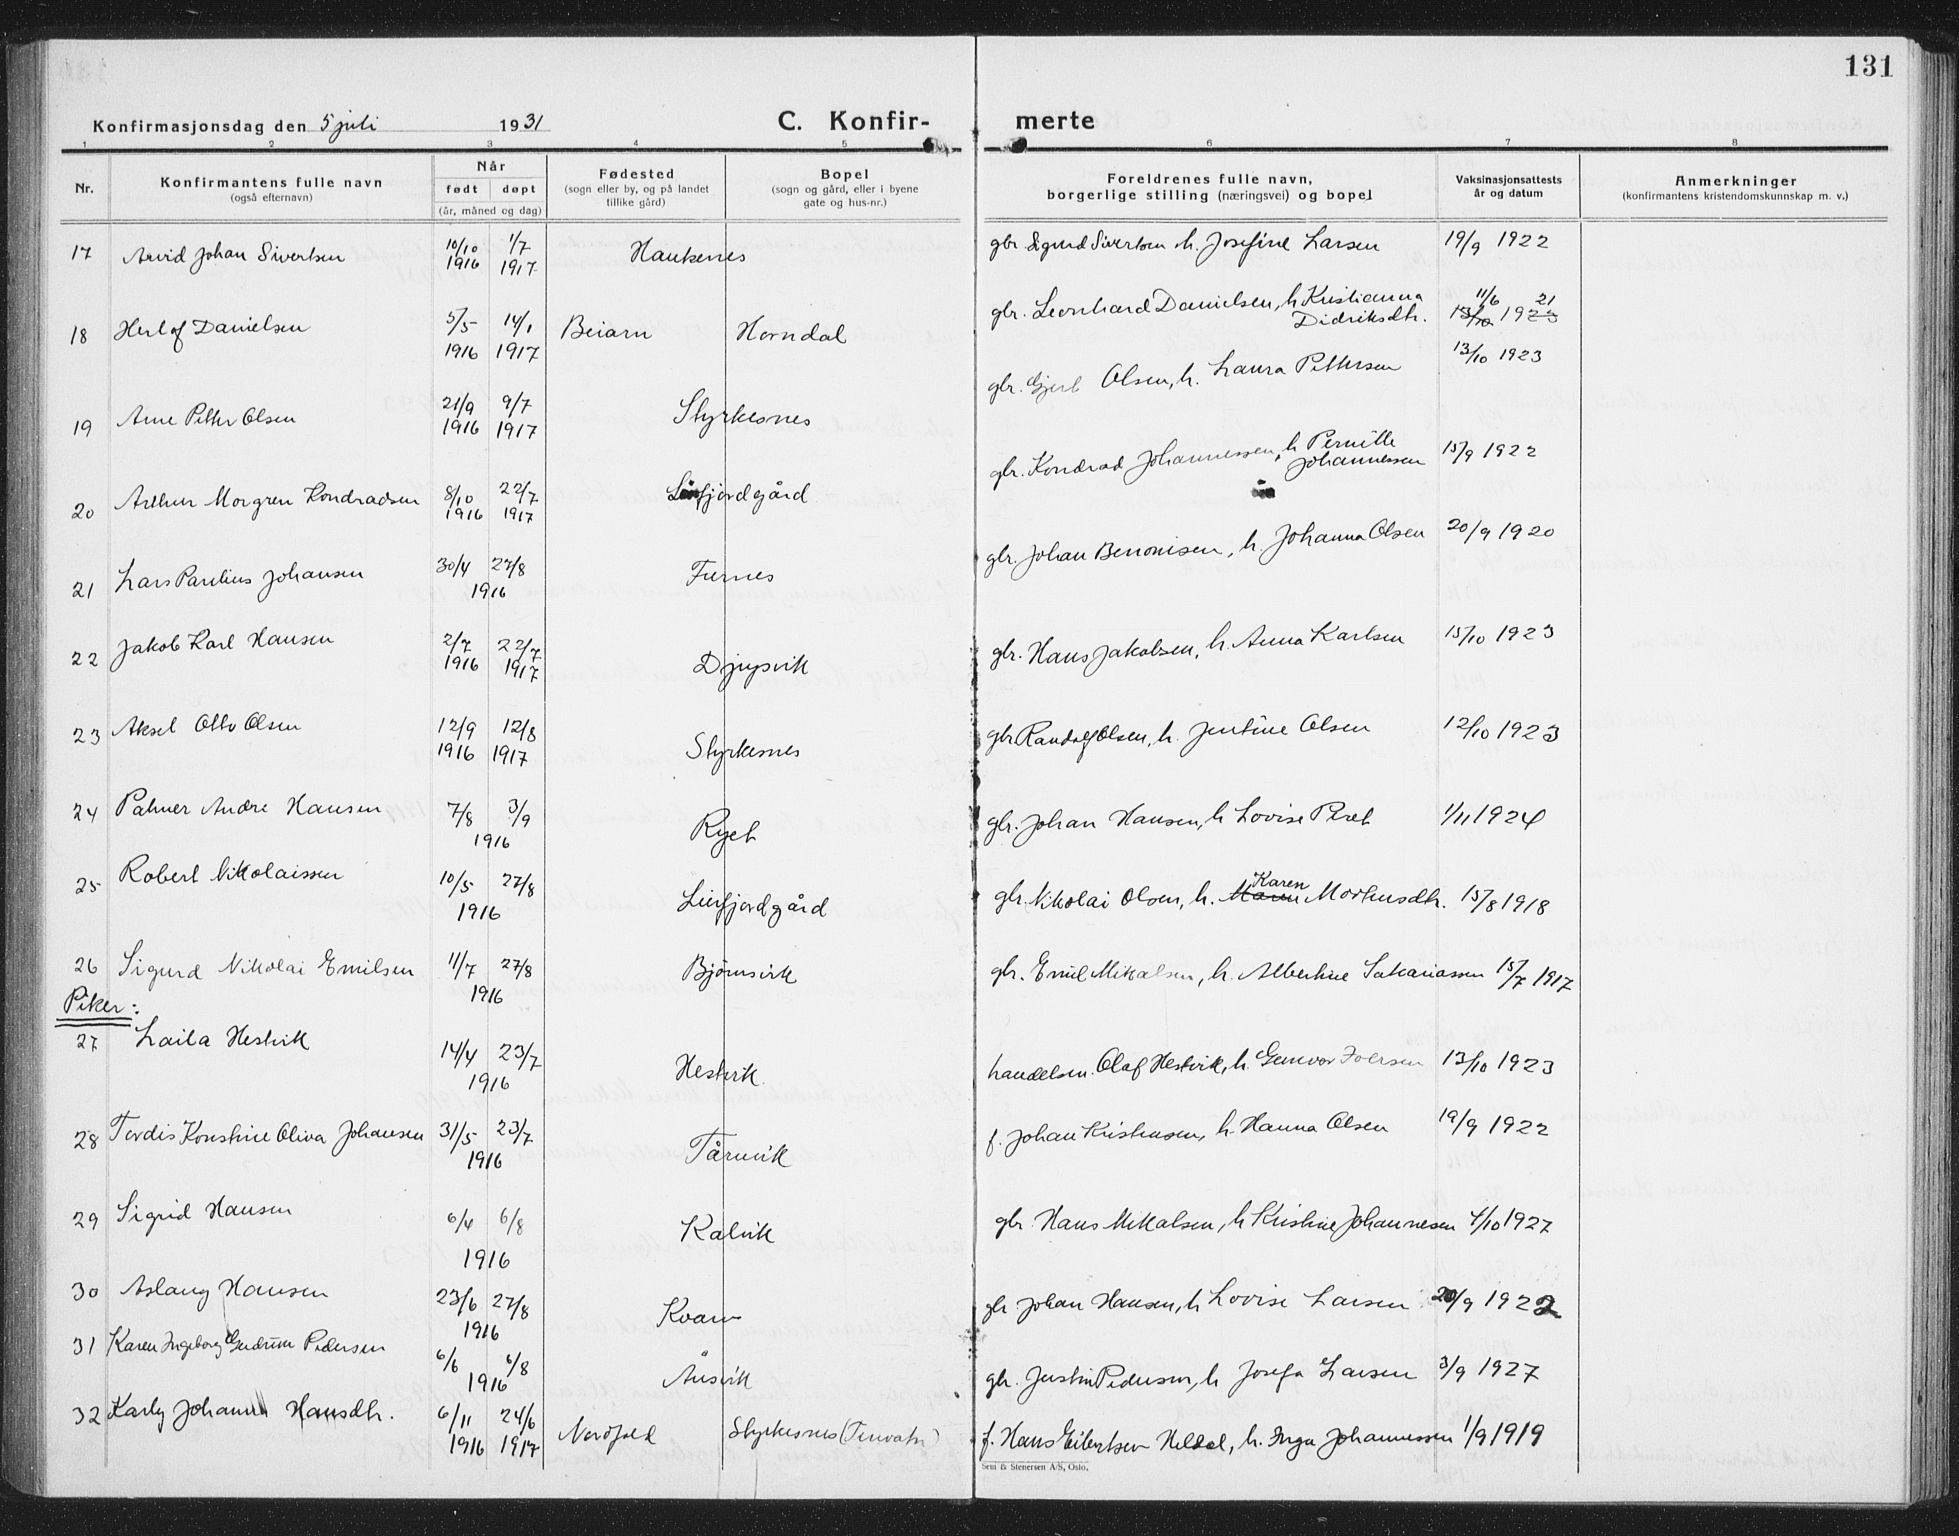 131
Konfirmasjonsdag den 5 juli 1931 C. Konfir- merte
1 2 3 4 5 6 7 8
Nr. Konfirmantens fulle navn (også efternavn) Når født døpt (år, måned og dag) Fødested (sogn eller by, og på landet tillike gård) Bopel (sogn og gård, eller i byene gate og hus-nr.) Foreldrenes fulle navn, borgerlige stilling (næringsvei) og bopel Vaksinasjonsattests år og datum Anmerkninger (konfirmantens kristendomskunnskap m. v.)
17 Arvid Johan Sivertsen 10/10 1916 1/7 1917 Haukenes gbr. Sigurd Sivertsen h. Josefine Larsen 19/9 1922
18 Herlof Danielsen 5/5 1916 14/1 1917 Beiarn Horndal gbr. Leonhard Danielsen, h Kristianna Didriksdtr. 11/6 21 13/10 1923
19 Arne Petter Olsen 21/9 1916 9/7 1917 Styrkesnes gbr. Gjert Olsen, h. Laura Pettersen 13/10 1923
20 Arthur Morgren Kondradsen 8/10 1916 22/7 1917 Leirfjordgård gbr. Kondrad Johannessen, h Pernille Johannessen 15/9 1922
21 Lars Paulius Johansen 30/4 27/8 1916 Furnes gbr. Johan Benonisen, h. Johanna Olsen 20/9 1920
22 Jakob Karl Hansen 2/7 1916 22/7 1917 Djupvik gbr. Hans Jakobsen, h. Anna Karlsen 15/10 1923
23 Aksel Otto Olsen 12/9 1916 12/8 1917 Styrkesnes gbr Randolf Olsen, h. Jentine Olsen 12/10 1923
24 Palmer Andre Hansen 7/8 3/9 1916 Ryet gbr. Johan Hansen, h Lovise Peret 1/11 1924
25 Robert Nikolaissen 10/5 27/8 1916 Leirfjordgård gbr. Nikolai Olsen, h. Maren Karen Mortensdtr. 15/8 1918
26 Sigurd Nikolai Emilsen 11/7 27/8 1916 Bjørnsvik gbr. Emil Mikalsen, h. Albertine Sakariassen 15/7 1917
Piker:
27 Laila Hestvik 14/4 23/7 1916 Hestvik handelsm. Olaf Hestvik, h. Gunvor Iversen 13/10 1923
28 Tordis Konstine Oliva Johansen 31/5 23/7 1916 Tårnvik f. Johan Kristensen, h. Hanna Olsen 19/9 1922
29 Sigrid Hansen 6/4 6/8 1916 Kalvik gbr. Hans Mikalsen, h Kristine Johannesen 4/10 1927
30 Aslaug Hansen 23/6 27/8 1916 Kvarv gbr Johan Hansen, h Lovise Larsen 20/9 1922
31 Karen Ingeborg Gudrun Pedersen 6/6 6/8 1916 Åusvik gbr. Justin Pedersen, h Josefa Larsen 3/9 1927
32 Karly Johanna Hansdtr. 6/11 1916 24/6 1917 Nordfold Styrkesnes (Tervatn) f. Hans Eilertsen Heldal, h. Inga Johannessen 1/9 1919
Sem & Stenersen A/S, Oslo.